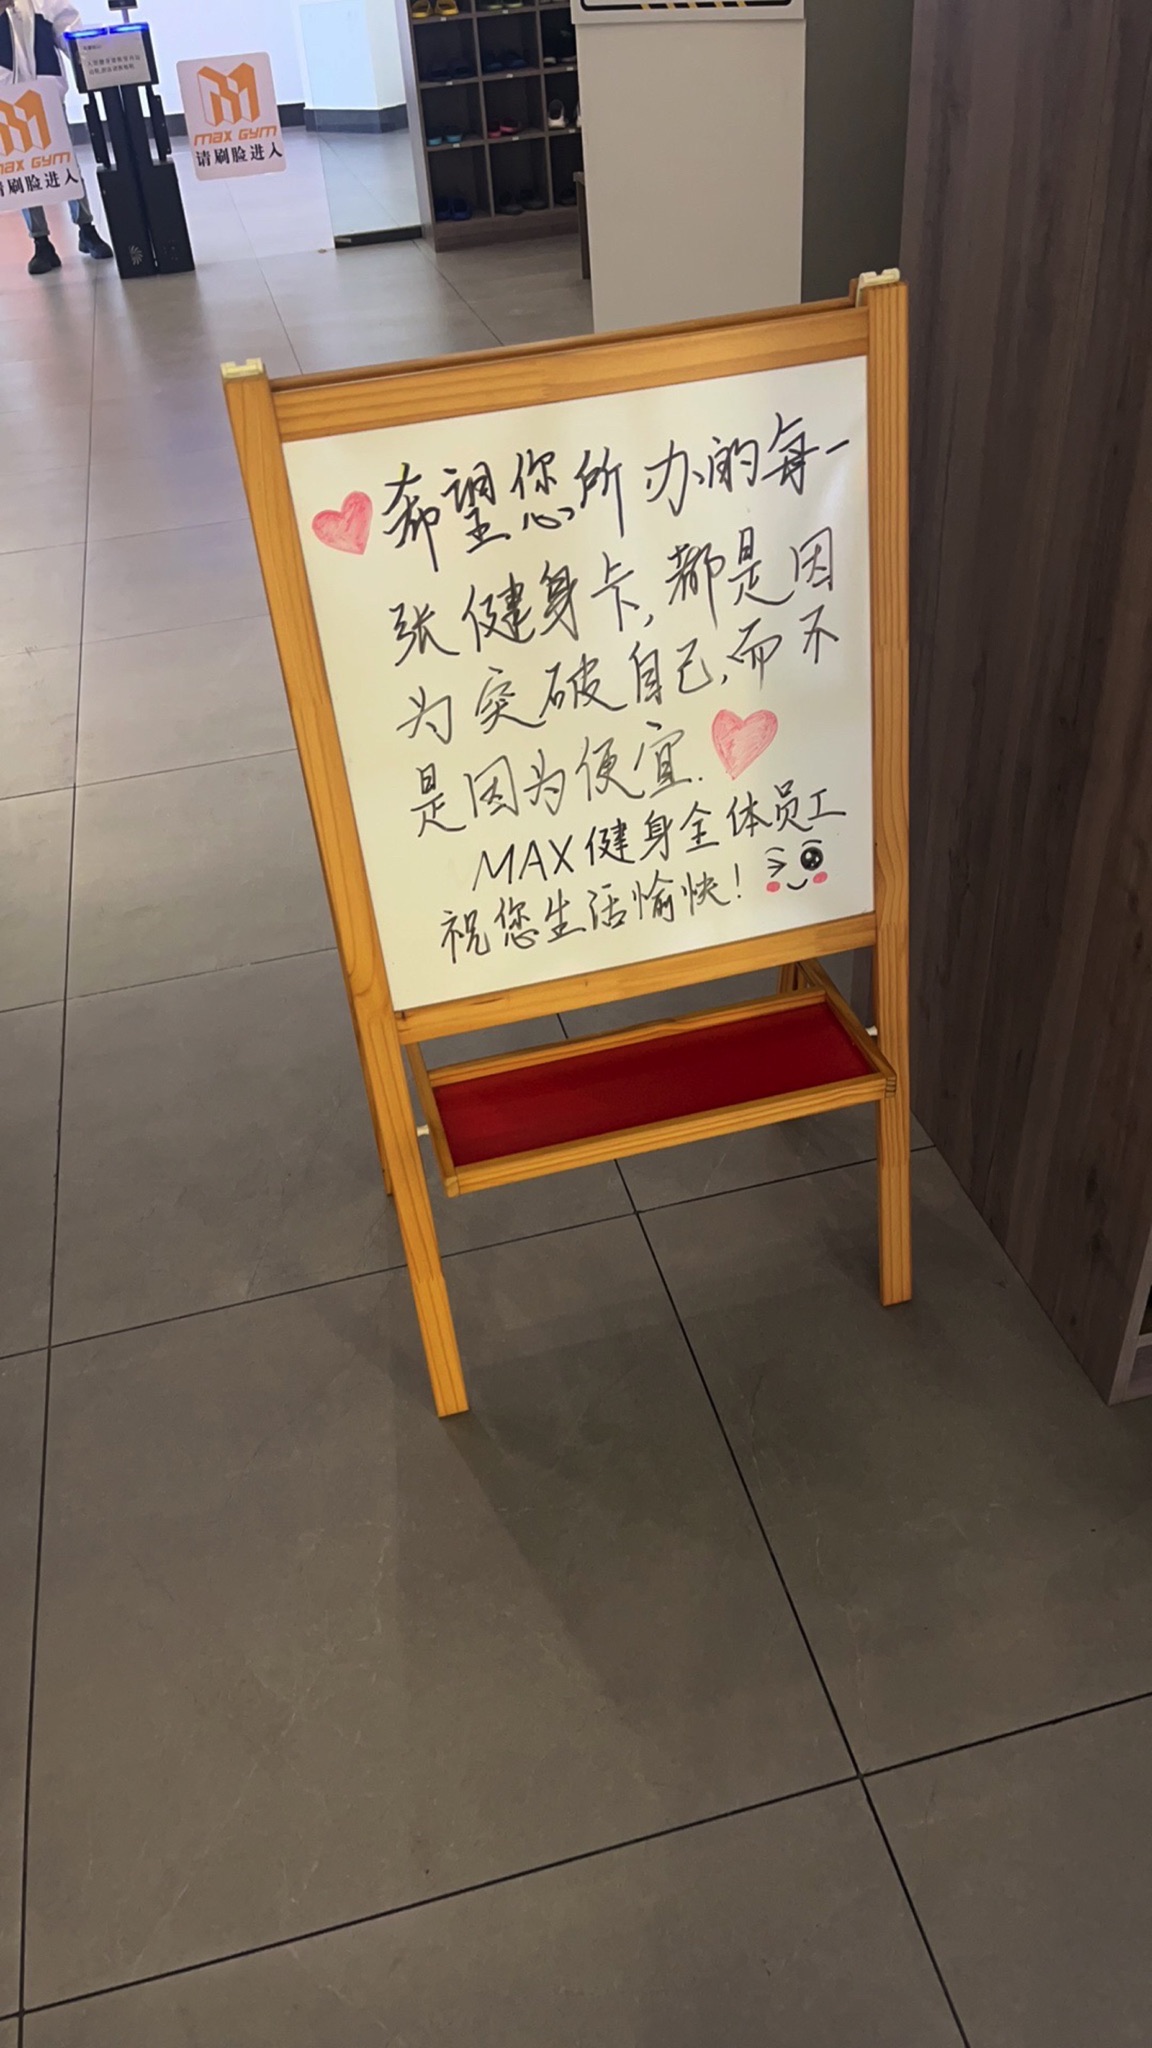 MAX GYM
请刷脸进入
MAX GYM
请刷脸进入
希望您所办的每一
张健身卡,都是因
为突破自己,而不
是因为便宜.
MAX健身全体员工
祝您生活愉快!